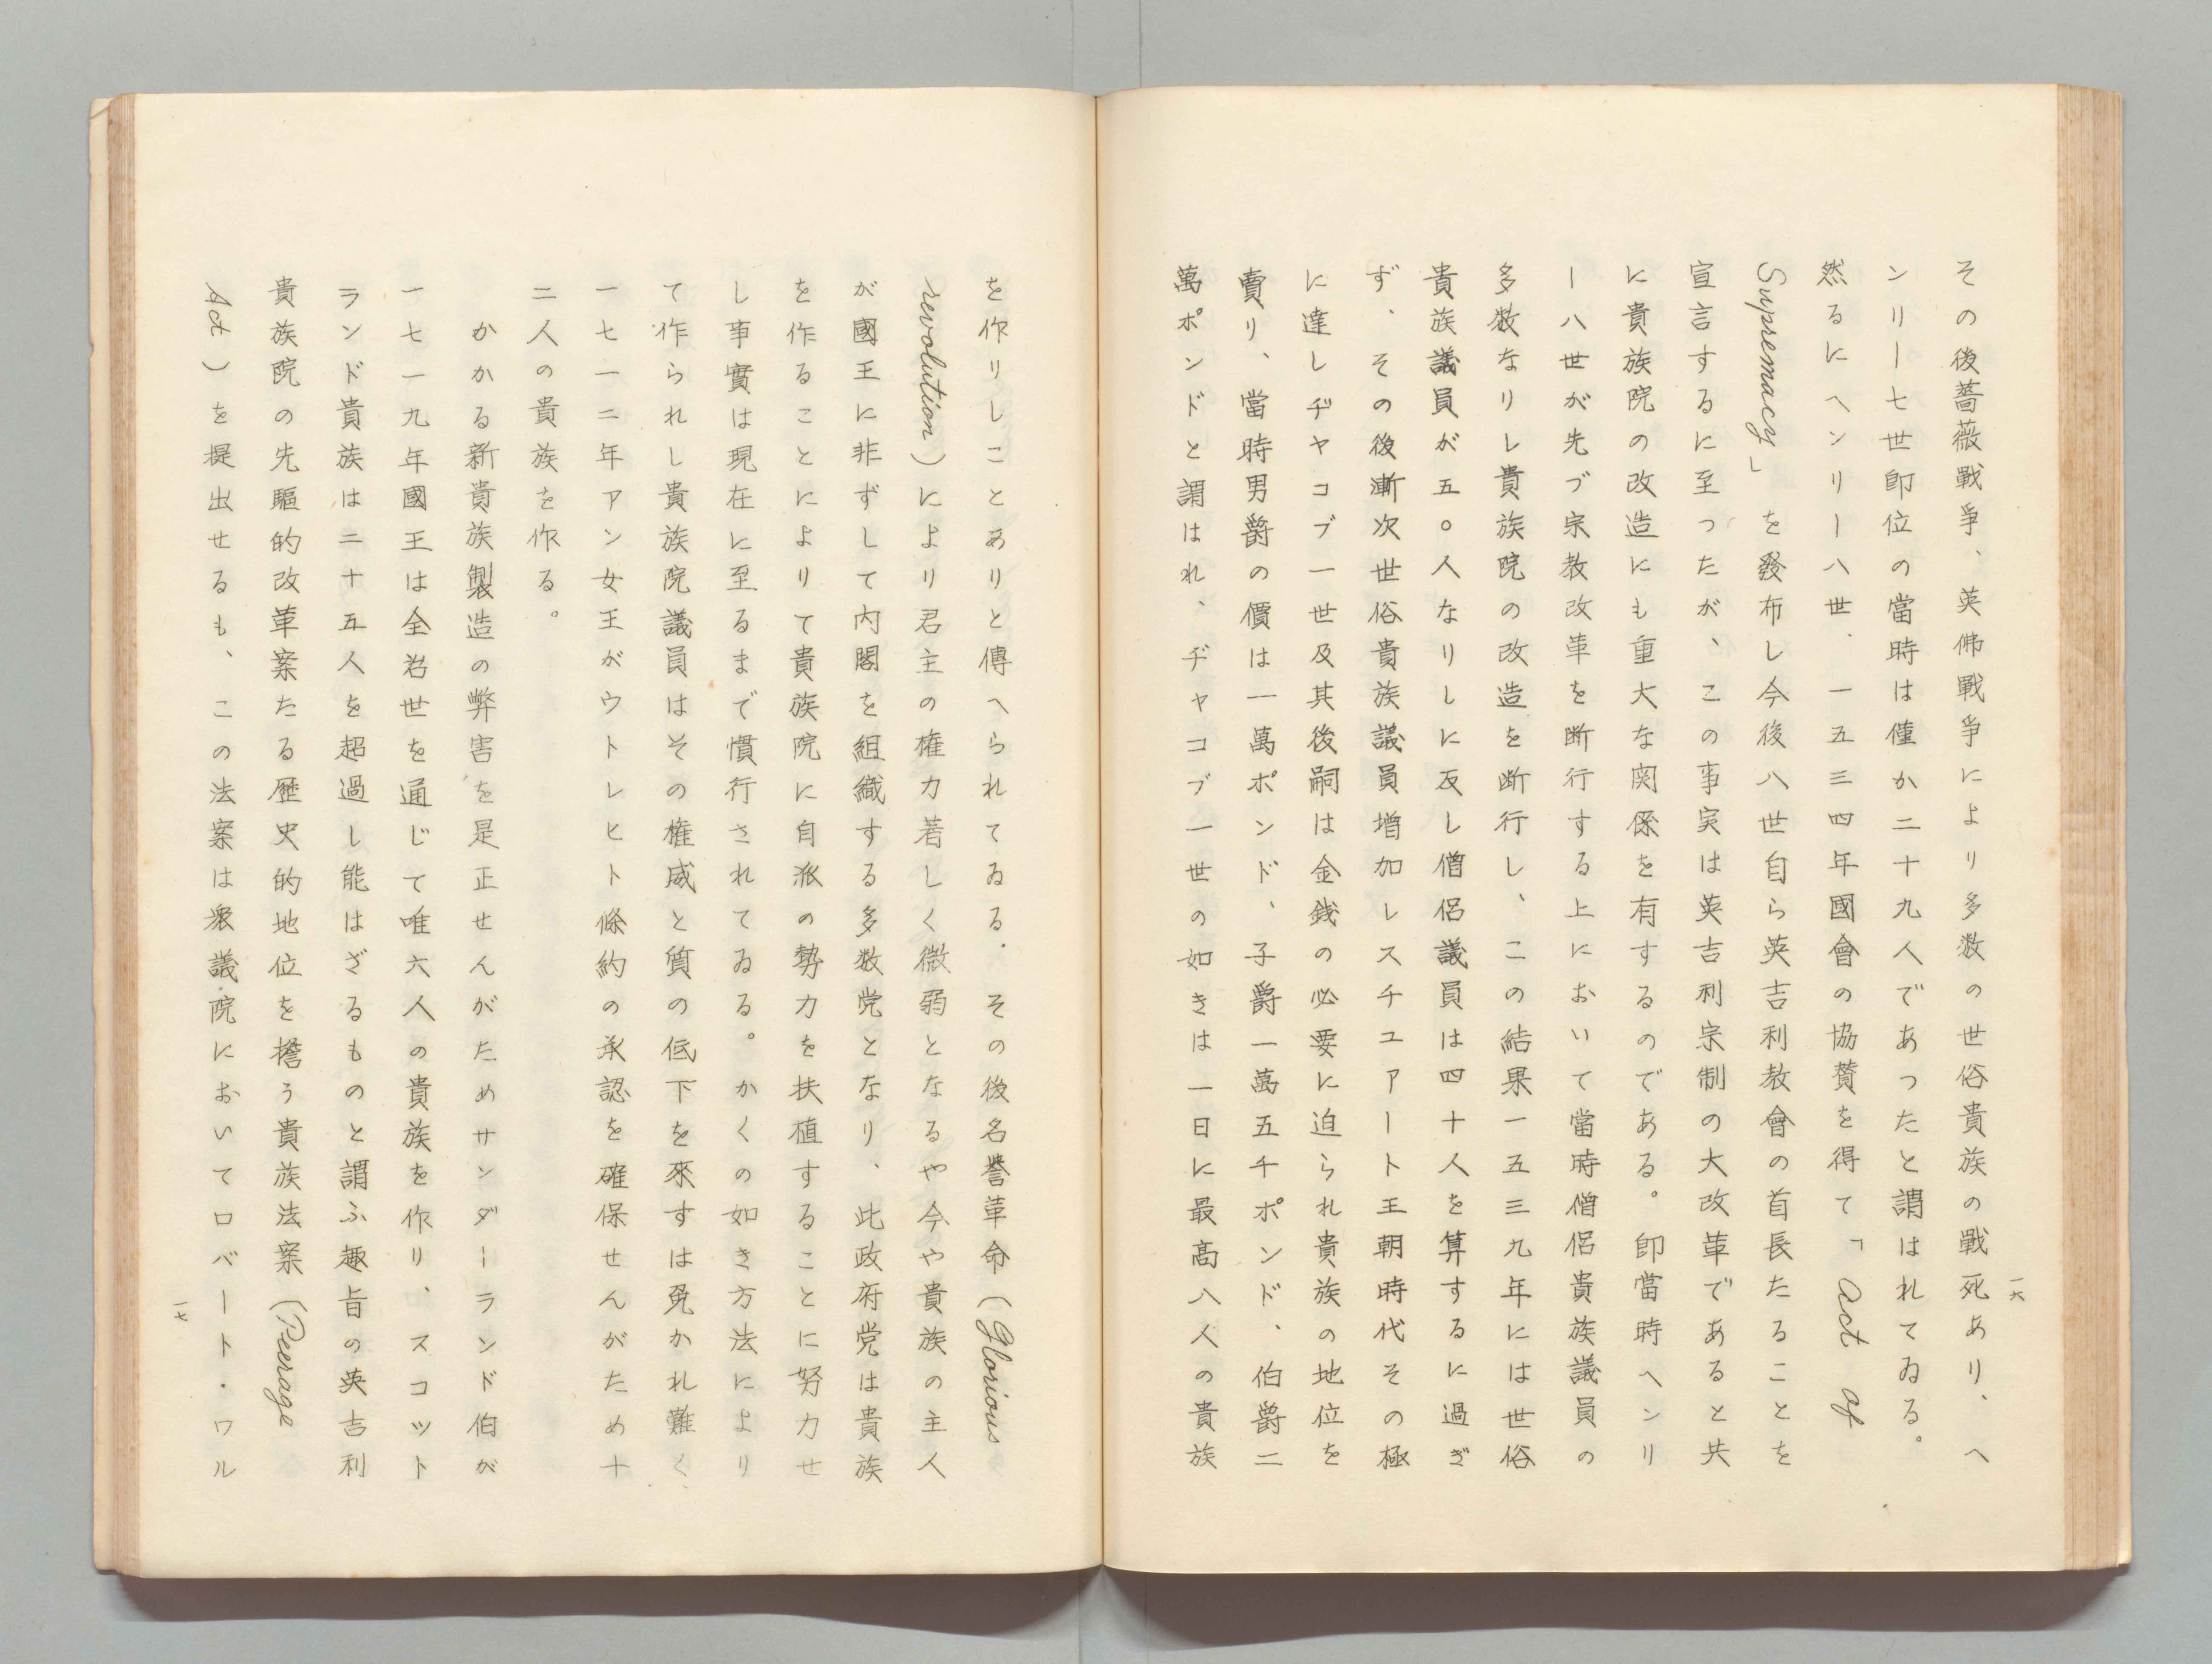 その後薔薇戰爭、英佛戰爭により多数の世俗貴族の戰死あり、ヘ
ンリー七世卽位の當時は僅か二十九人であつたと謂はれてゐる。
然るにヘンリー八世、一五三四年國會の協賛を得て「Act of
Supremacy」を發布し今後八世自ら英吉利教會の首長たることを
宣言するに至つたが、この事実は英吉利宗制の大改革であると共
に貴族院の改造にも重大な関係を有するのである。卽當時ヘンリ
ー八世が先づ宗教改革を断行する上において當時僧侶貴族議員の
多数なりし貴族院の改造を断行し、この結果一五三九年には世俗
貴族議員が五〇人なりしに反し僧侶議員は四十人を算するに過ぎ
ず、その後漸次世俗貴族議員増加しスチユアート王朝時代その極
に達しヂヤコブ一世及其後嗣は金銭の必要に迫られ貴族の地位を
賣り、當時男爵の價は一萬ポンド、子爵一萬五千ポンド、伯爵二
萬ポンドと謂はれ、ヂヤコブ一世の如きは一日に最高八人の貴族
一六
を作りしことありと傳へられてゐる。その後名誉革命（Glorious
revolution）により君主の権力著しく微弱となるや今や貴族の主人
が國王に非ずして内閣を組織する多数党となり、此政府党は貴族
を作ることによりて貴族院に自派の勢力を扶植することに努力せ
し事實は現在に至るまで慣行されてゐる。かくの如き方法により
て作られし貴族院議員はその権威と質の低下を來すは免かれ難く、
一七一二年アン女王がウトレヒト條約の承認を確保せんがため十
二人の貴族を作る。
かかる新貴族製造の弊害を是正せんがためサンダーランド伯が
一七一九年國王は全治世を通じて唯六人の貴族を作り、スコット
ランド貴族は二十五人を超過し能はざるものと謂ふ趣旨の英吉利
貴族院の先驅的改革案たる歴史的地位を擔う貴族法案（Peerage
Act）を提出せるも、この法案は衆議院においてロバート・ワル
一七